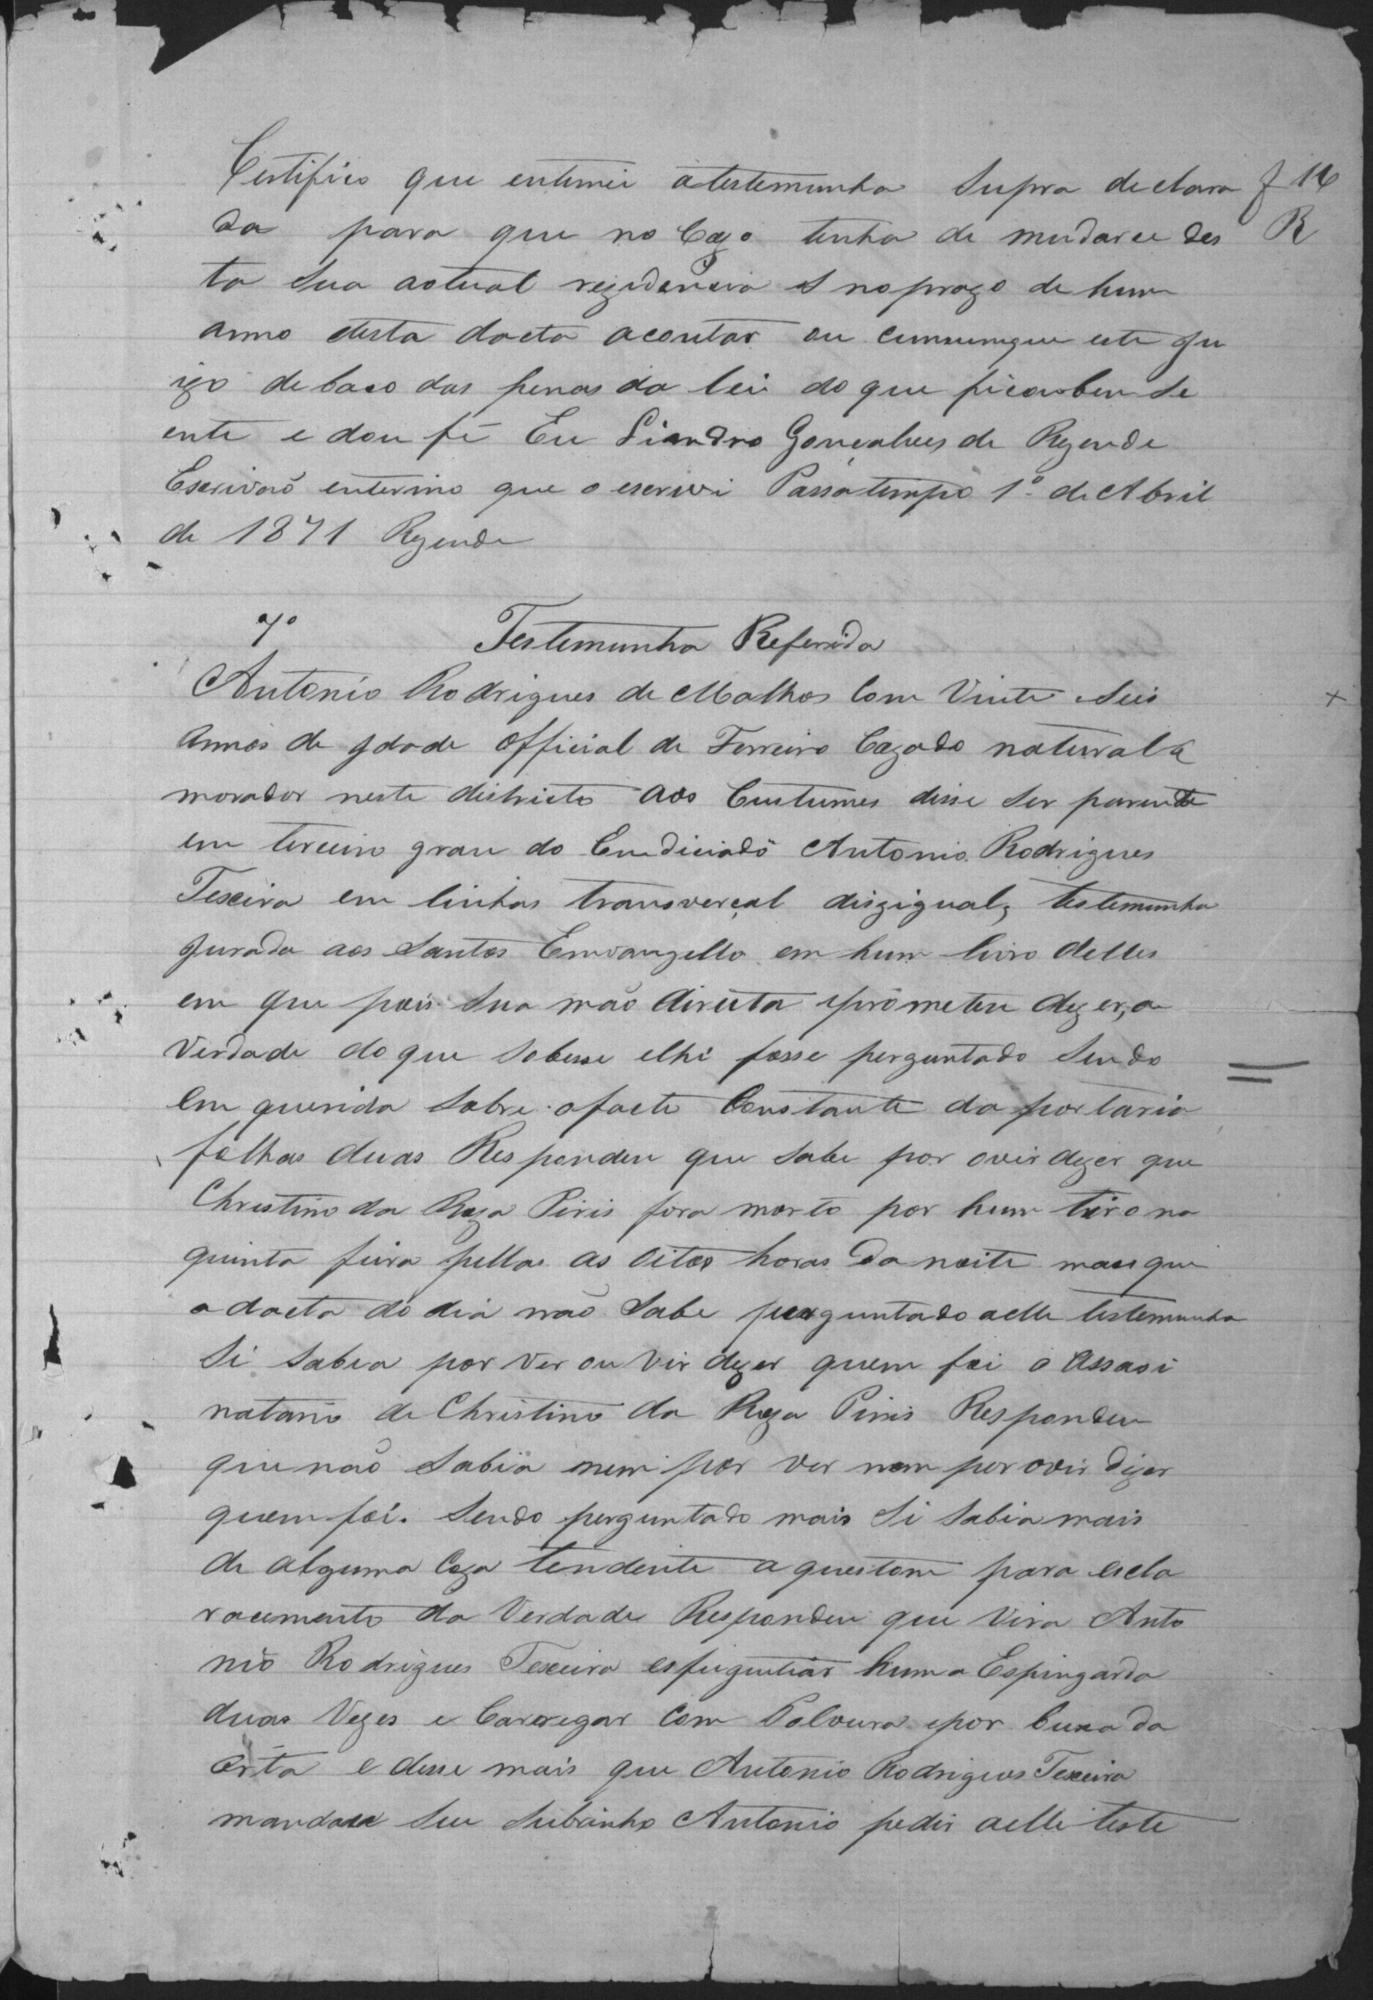 Certifico que entimei atestemunha Supra declara f 14
da para que no Cazo tenha de mudarce des R
ta Sua actual rezidencia I noprazo de hum
anno desta dacta acontar ou cumunique este Ju
izo debaco das penas da lei do que ficou bem Se
ente e dou fé Eu Liandro Gonçalves de Rezende
Escrivaõ enterino que o escrivi Passatempo 1º de Abril
de 1871 Rezende
7º Testemunha Referida
Antonio Rodrigues de Mathos Com Vinte Seis
annos de ydade official de Ferreiro Cazado natural e
morador neste districto aos Custumes disse Ser parente
em terceiro grau do Emdiciado Antonio Rodrigues
Texeira em linhas transverçal dizigual, testemunha
Jurada aos Santos Envangello em hum livro delles
em que pois Sua maõ direita eprometeu dizer, a
Verdade do que Sobesse elhe fosse perguntado Sendo
Emquerida Sobre ofacto Constante da portaria
folhas duas Respondeu que Sabe por ovir dizer que
Christino da Roza Piris fora morto por hum tiro na
quinta feira pellas as oitos horas da noite mais que
a dacta do dia naõ Sabe perguntado aelle testemunha
Si Sabia por Ver ou Vir dizer quem foi o assasi
natario de Christino da Roza Piris Respondeu
que naõ Sabia nem por ver nem por ovir dizer
quem foi. Sendo perguntado mais Si Sabia mais
de alguma Coza tendente a questom para escla
racimento da Verdade Respondeu que Vira Anto
nio Rodrigues Texeira espinguitiar huma Espingarda
duas Vezes e Carregar Com Polvura epor buxa da
orta e disse mais que Antonio Rodrigues Texeira
mandara Seu Subrinho Antonio pedir aelle teste